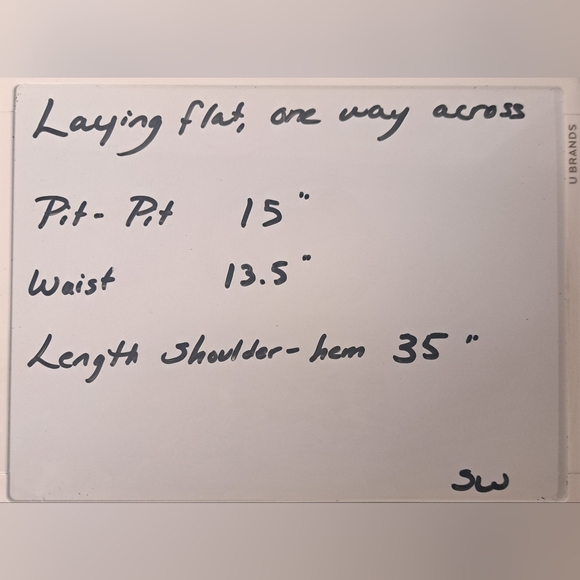 Laying flat, one way across
U BRANDS
Pit- Pit 15"
Waist 13.5"
Length shoulder-hem 35"
SW